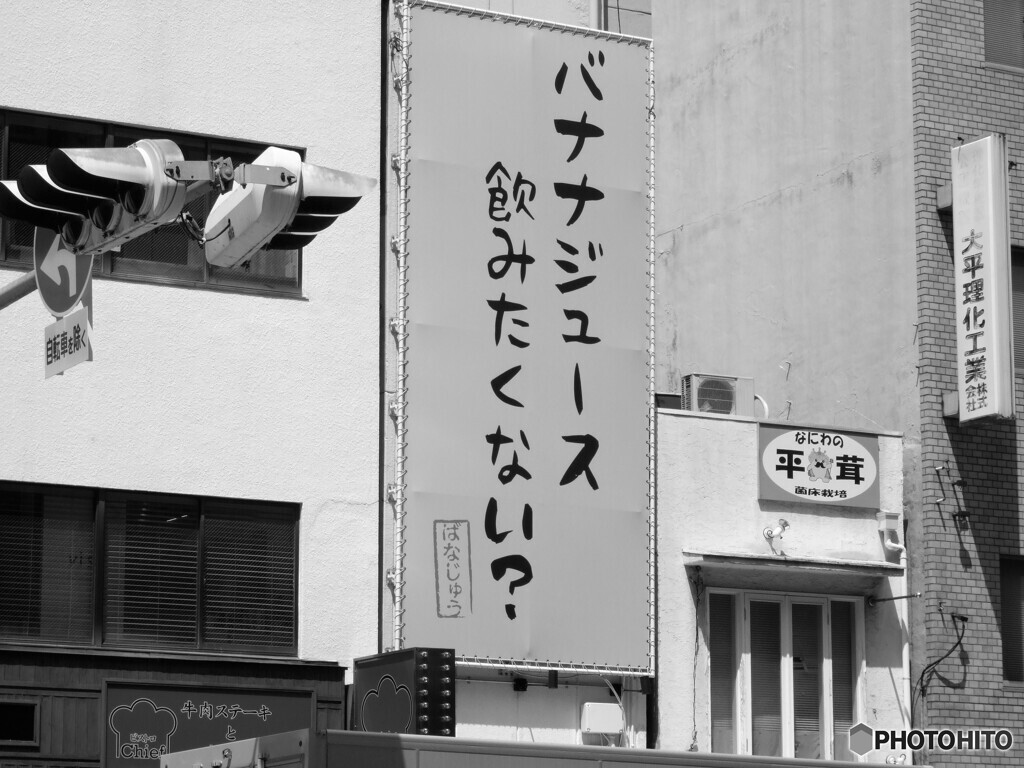 バナナジュース
飲みたくない?
ばなじゅう
自転車を除く
大平理化工業株式会社
なにわの
平茸
菌床栽培
牛肉ステーキ
と
ビストロ
Chief
PHOTOHITO